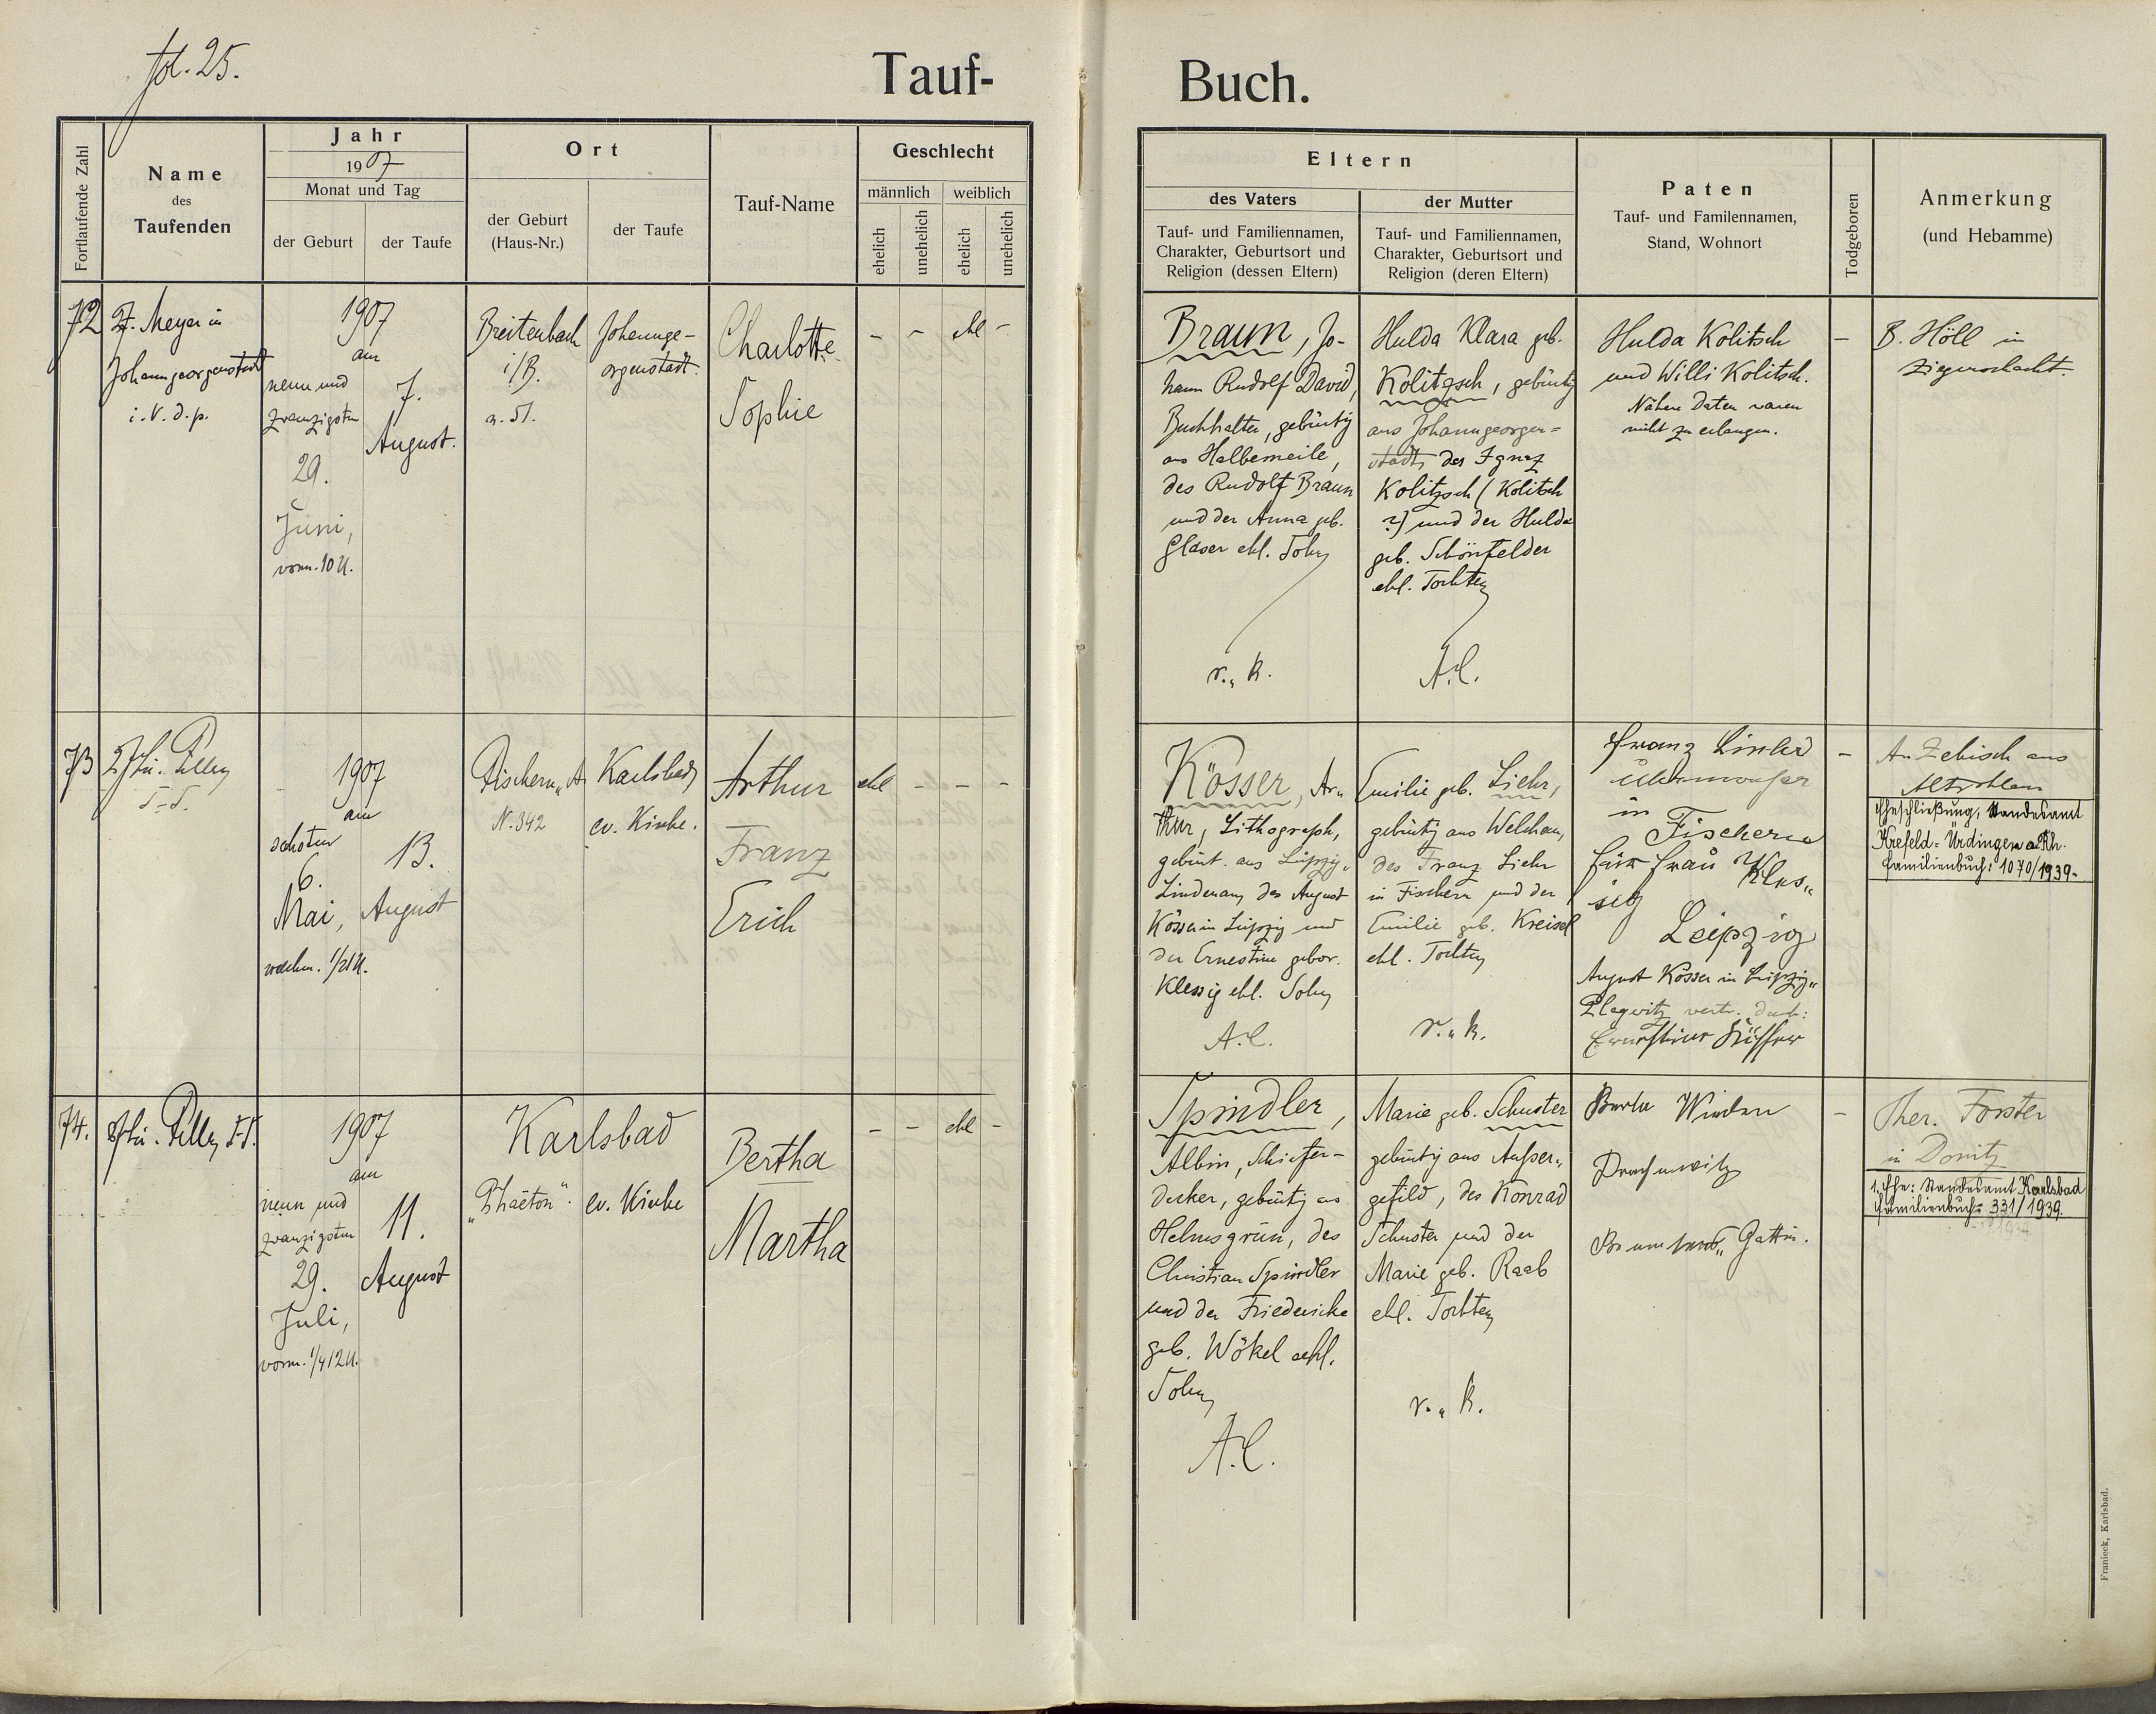 fol. 25.
Tauf-
Buch.
Fortlaufende Zahl
Name
des
Taufenden
Jahr
1907
Monat und Tag
der Geburt
der Taufe
Ort
der Geburt
(Haus-Nr.)
der Taufe
Tauf-Name
Geschlecht
männlich
weiblich
ehelich
unehelich
ehelich
unehelich
Eltern
des Vaters
Tauf- und Familiennamen,
Charakter, Geburtsort und
Religion (dessen Eltern)
der Mutter
Tauf- und Familiennamen,
Charakter, Geburtsort und
Religion (deren Eltern)
Paten
Tauf- und Familennamen,
Stand, Wohnort
Todgeboren
Anmerkung
(und Hebamme)
72
Meyer in
Johanngeorgenstadt
i. V. d. p.
1907
am
neun und
zwanzigsten
29.
Juni,
vorm. 10 U.
7.
August.
Breitenbach
i/B.
n. 51.
Johannge-
orgenstadt.
Charlotte
Sophie
- - ehl -
Braun, Jo-
hann Rudolf David,
Buchhalter, gebürtig
aus Halbemeile,
des Rudolf Braun
und der Anna geb.
Glaser ehl. Sohn
r.-k.
Hulda Klara geb.
Kolitzsch, gebürtig
aus Johanngeorgen=
stadt, des Ignaz
Kolitzsch (Kolitsch
?) und der Hulda
geb. Schönfelder
ehl. Tochter
A.C.
Hulda Kolitsch
und Willi Kolitsch.
Nähere Daten waren
nicht zu erlangen.
-
B. Höll in
Ziegenschacht.
73
1907
am
sechsten
6.
Mai,
nachm. 1/2 1 U.
13.
August
Fischern
N. 342
Karlsbad
ev. Kirche.
Arthur
Franz
Erich
ehl - - -
Kösser, Ar-
thur, Lithograph,
gebürt. aus Leipzig-
Lindenau, des August
Kösser in Leipzig und
der Ernestine gebor.
Klessig ehl. Sohn
A.C.
Emilie geb. Liehr,
gebürtig aus Welchau,
des Franz Liehr
in Fischern und der
Emilie geb. Kreisel
ehl. Tochter
r.-k.
Franz
in
Fischern
für Frau Kles-
sig
Leipzig
August Kösser in Leipzig-
Plagwitz vertr. durch:
Ernestine Kösser
-
A. Zebisch aus
Altrohlau
Eheschließung, Standesamt
Krefeld-Ürdingen a. Rh.
Familienbuch: 1070/1939-
74.
1907
am
neun und
zwanzigsten
29.
Juli,
vorm. 1/4 12 U.
11.
August
Karlsbad
"Phaëton".
ev. Kirche
Bertha
Martha
- - ehl -
Spindler,
Albin, Schiefer-
decker, gebürtig aus
Helmsgrün, des
Christian Spindler
und der Friedericke
geb. Wökel ehl.
Sohn
A.C.
Marie geb. Schuster
gebürtig aus Außer-
gefild, des Konrad
Schuster und der
Marie geb. Raab
ehl. Tochter
r.-k.
Gattin.
-
Ther. Forster
in Donitz
1. Ehe: Standesamt Karlsbad
Familienbuch: 331/1939.
Franieck, Karlsbad.